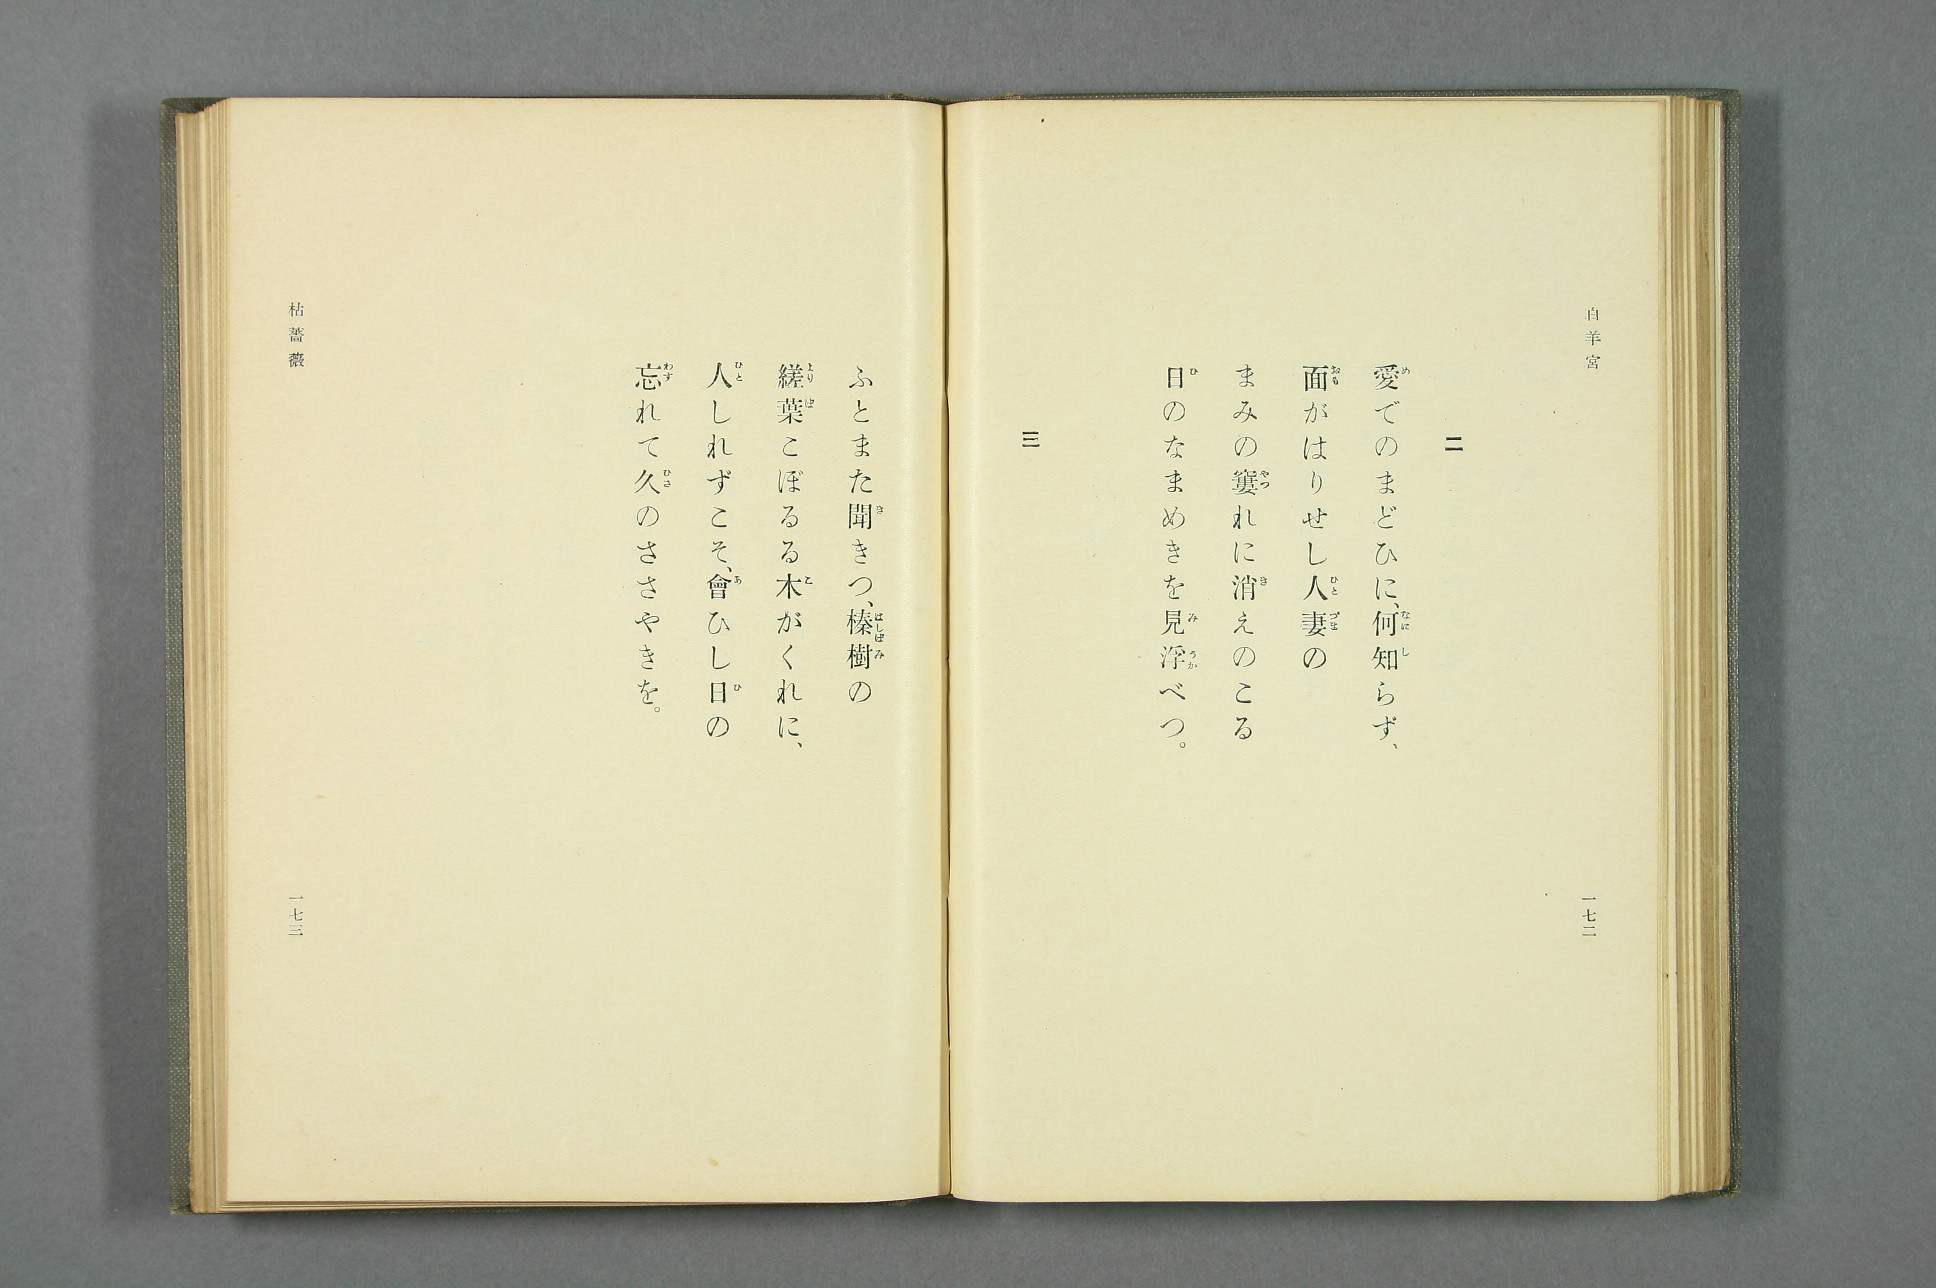 白羊宮
二
愛でのまどひに、何知らず、
面がはりせし人妻の
まみの窶れに消えのこる
日のなまめきを見浮べつ。
三
一七二
ふとまた聞きつ、榛樹の
縒葉こぼるる木がくれに、
人しれずこそ、會ひし日の
忘れて久のささやきを。
枯薔薇
一七三